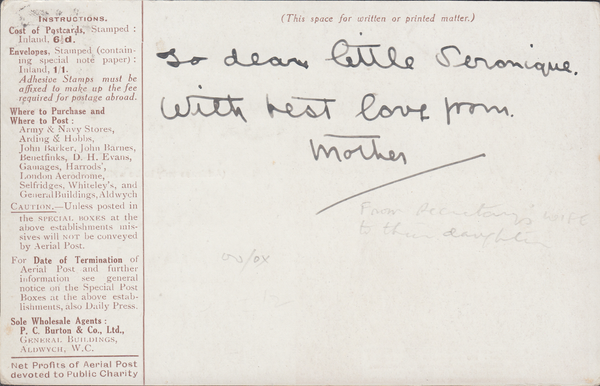 INSTRUCTIONS.
Cost of Postcards, Stamped :
Inland, 6½d.
Envelopes, Stamped (contain-
ing special note paper) :
Inland, 1/1.
Adhesive Stamps must be
affixed to make up the fee
required for postage abroad.
Where to Purchase and
Where to Post :
Army & Navy Stores,
Arding & Hobbs,
John Barker, John Barnes,
Benetfinks, D. H. Evans,
Gamages, Harrods',
London Aerodrome,
Selfridges, Whiteley's, and
General Buildings, Aldwych
CAUTION.—Unless posted in
the SPECIAL BOXES at the
above establishments mis-
sives will NOT be conveyed
by Aerial Post.
For Date of Termination of
Aerial Post and further
information see general
notice on the Special Post
Boxes at the above estab-
lishments, also Daily Press.
Sole Wholesale Agents :
P. C. Burton & Co., Ltd.,
GENERAL BUILDINGS,
ALDWYCH, W.C.
Net Profits of Aerial Post
devoted to Public Charity
(This space for written or printed matter.)
To dear little Veronique.
With best love from.
Mother
From Secretary's wife
to their daughter